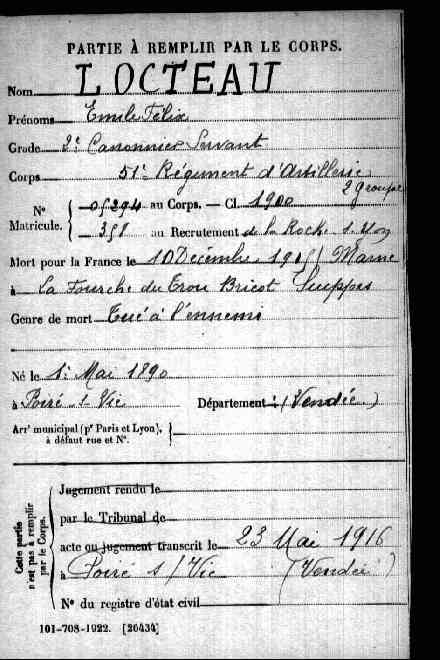 PARTIE À REMPLIR PAR LE CORPS.
Nom LOCTEAU
Prénoms Emile Félix
Grade 2e Canonnier Servant
Corps 51e Régiment d'Artillerie
2 groupe
N° Matricule. { 05294 au Corps. — Cl. 1900
351 au Recrutement de la Roche s. Yon
Mort pour la France le 10 Décembre 1915 (Marne
à La Fourche du Trou Bricot Suippes
Genre de mort Tué à l'ennemi
Né le 1e Mai 1890
à Poiré s. Vie Département (Vendée)
Arrt municipal (pr Paris et Lyon), à défaut rue et N°. }
Cette partie n'est pas à remplir par le Corps.
Jugement rendu le
par le Tribunal de
acte ou jugement transcrit le 23 Mai 1916
à Poiré s/Vie (Vendée)
N° du registre d'état civil
101-708-1922. [26434]